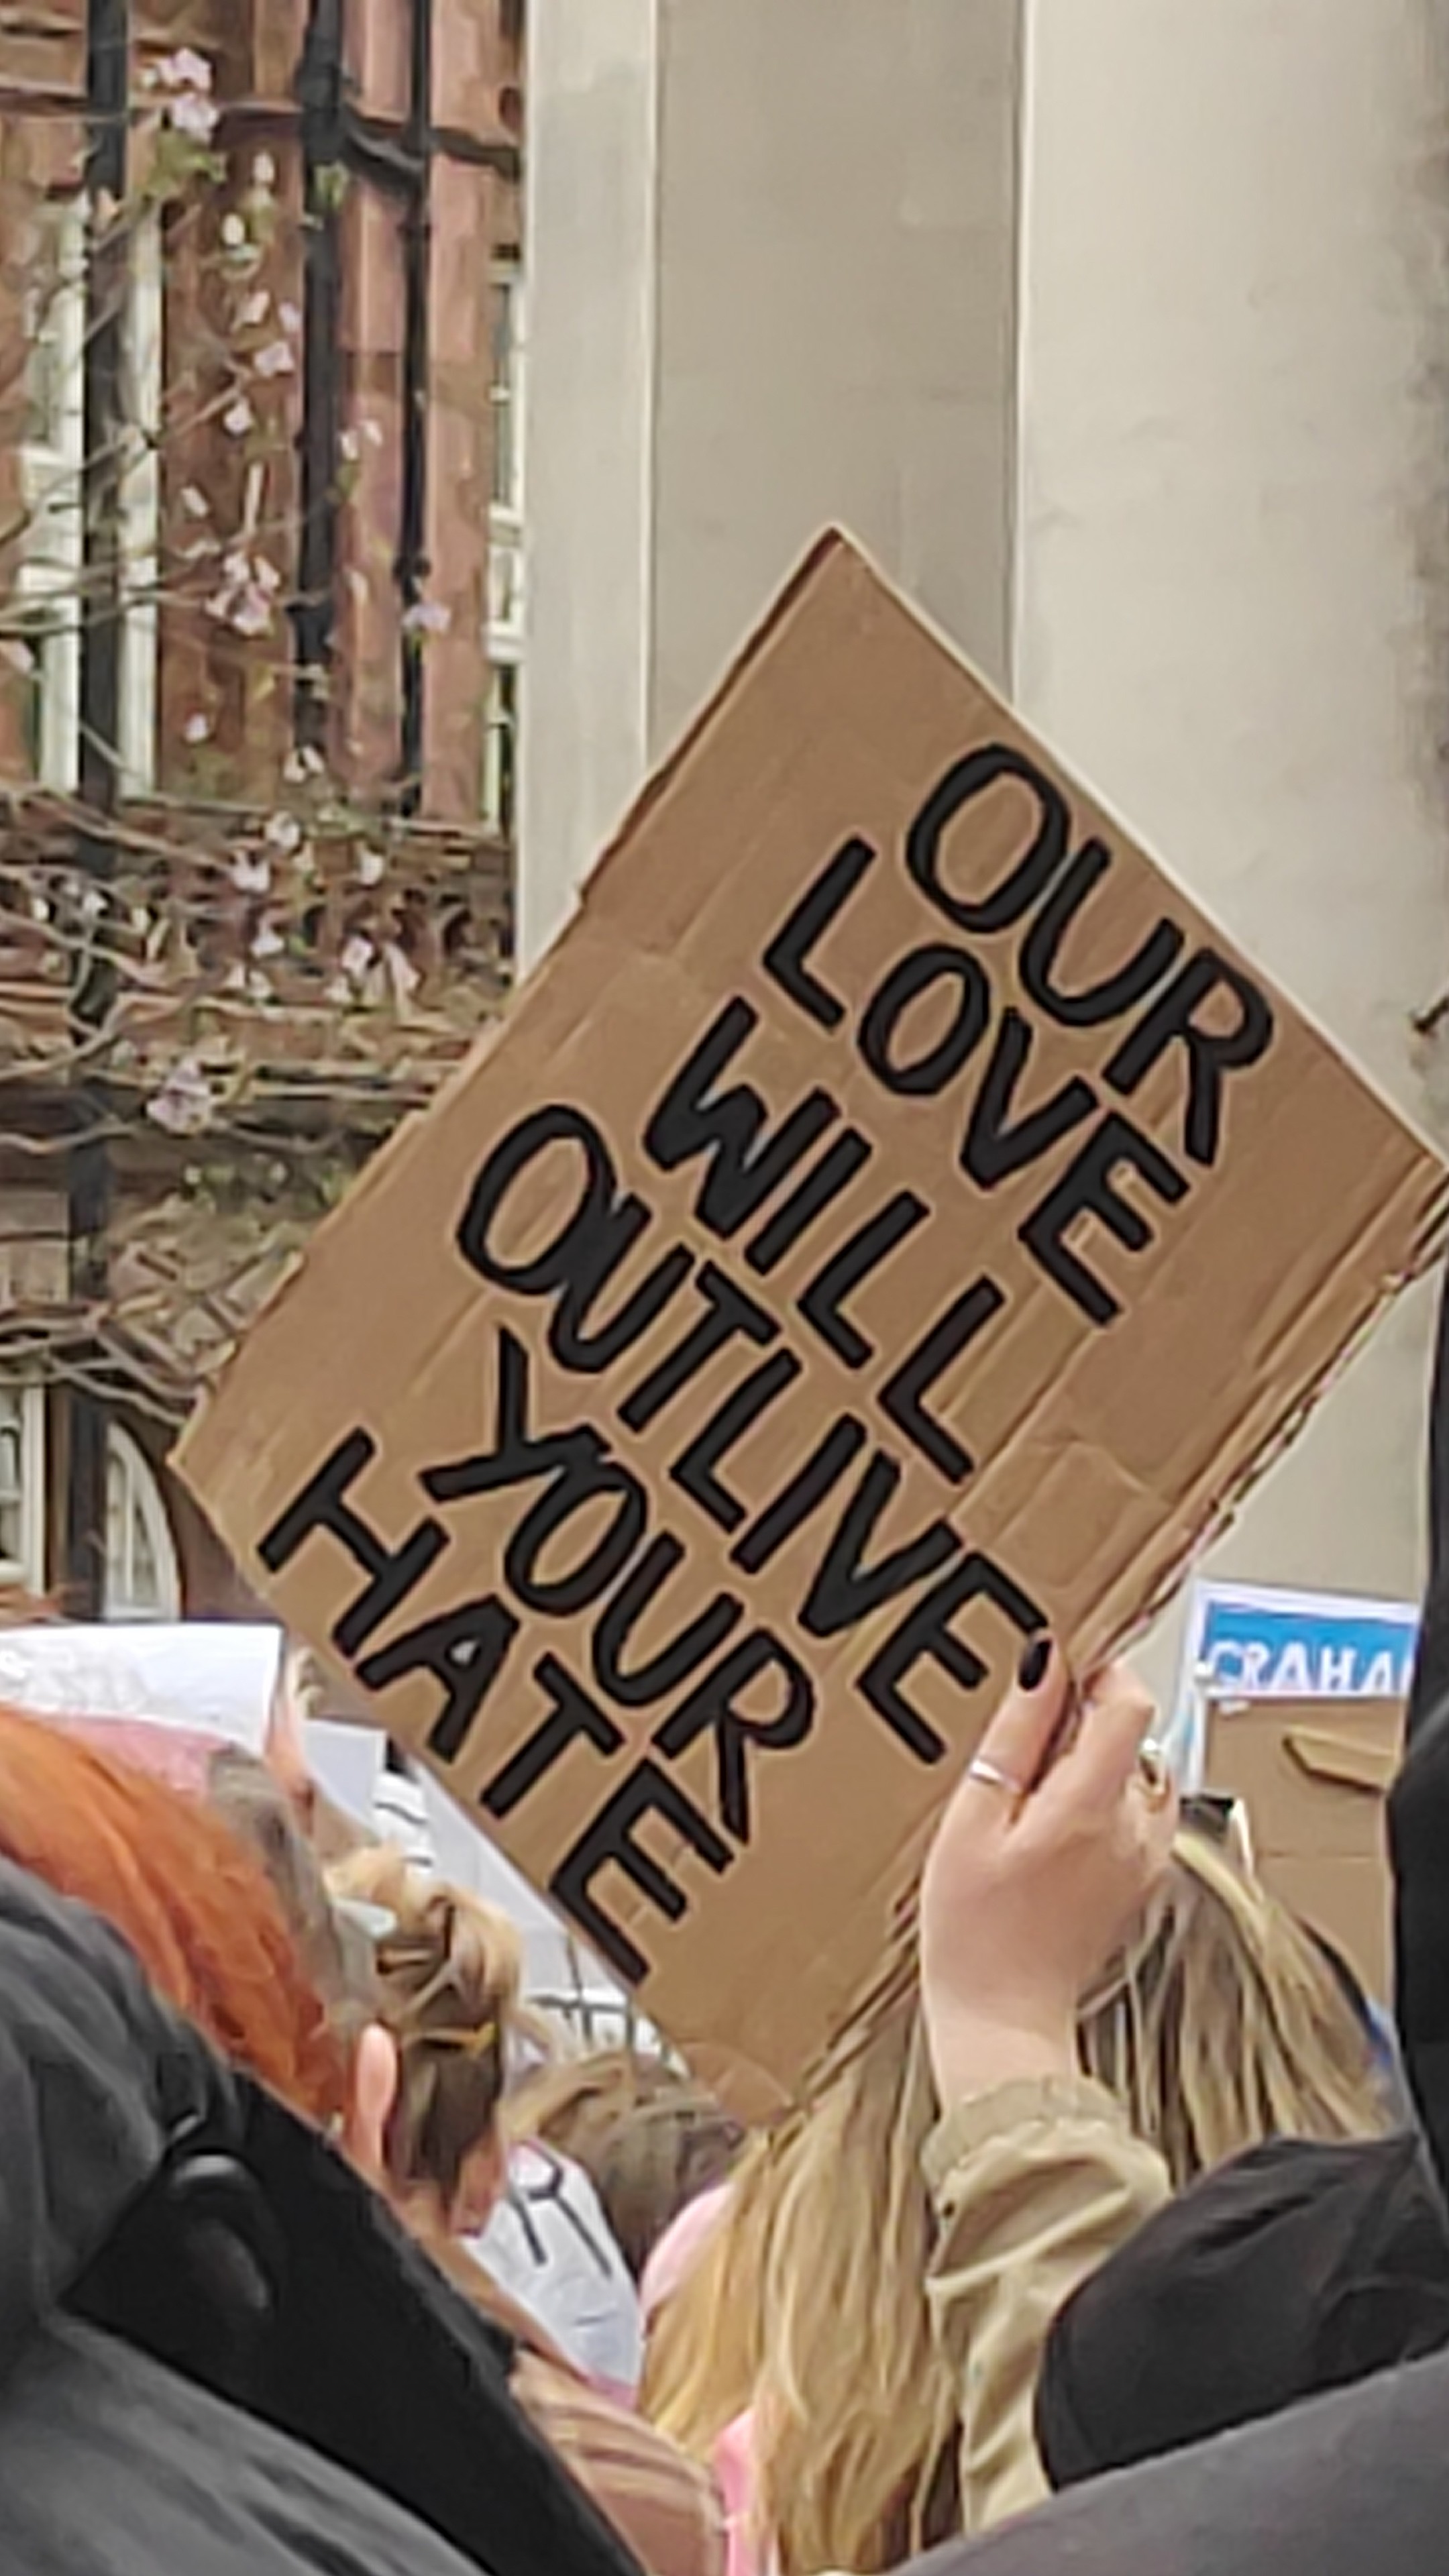 OUR
LOVE
WILL
OUTLIVE
YOUR
HATE
GRAHA